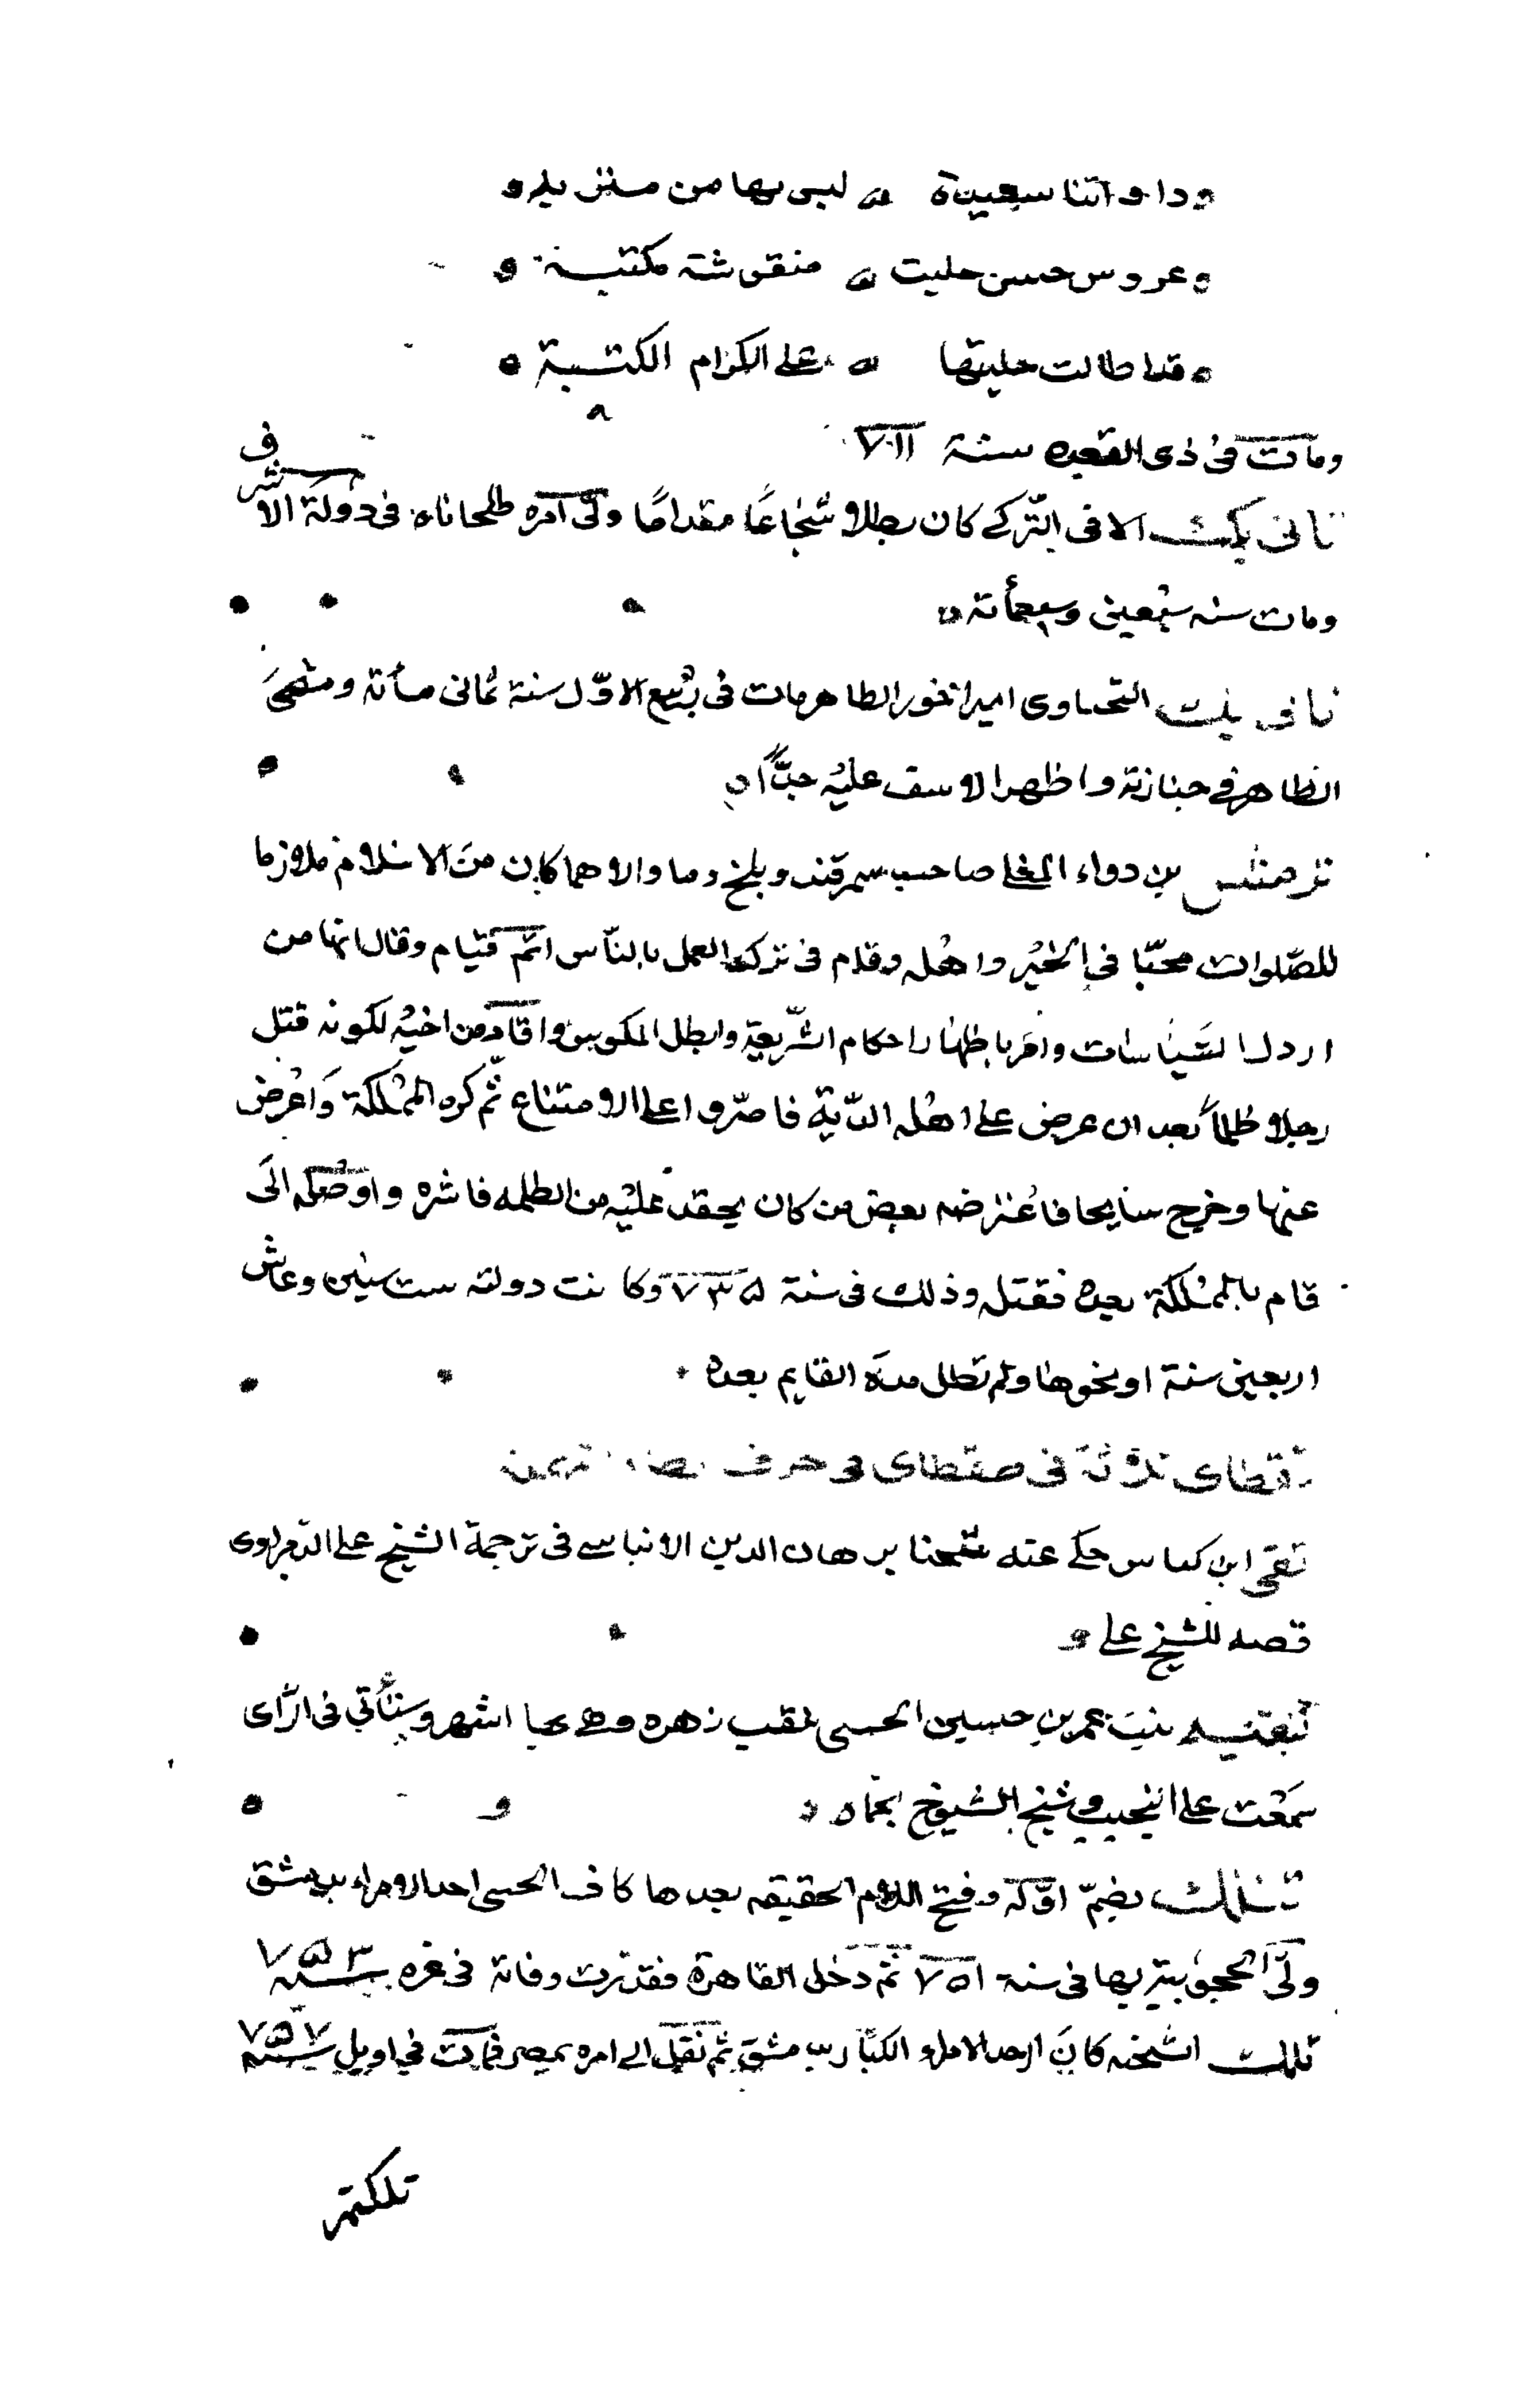 ودا و اتنا سعيدة ه ليس بها من منزيله و
وعروس حسن جليت ه منقوشة مكتبة و
ه قد اطالت جليتها ه على الكرام الكتبة ه
ومات فى ذى القعده سنة ٧٠١١
تانى بك الافى التركى كان بطلا شجاعًا مقدامًا ولى امره طلحاناه فى دولة الاشرف
ومات سنه سبعين وسبعمأتة
تانى بك التحياوى امير اخور الظاهر مات فى ربيع الاوّل سنة ثمانى مأتة ومشى
الظاهر فى جنازته واظهر الاسف عليه جدًّا
ترمشس بن دواء المغلى صاحب سمرقند وبلخ وما والاهما كان من الاسلام ملازما
للصّلوات محبّا فى الخير واهله وقام فى ترك العمل بالنّاس اتم قيام وقال انها من
اردل السّياسات وامر باظهار احكام الشّريعة وابطل المكوس واقاد من اخيه لكونه قتل
رجلا ظلماً بعد ان عرض على اهله الدّية فاصرّوا على الامتناع ثم كره المملكة واعرض
عنها وخرج سايحا فاعترضه بعض من كان يحقد عليه من الظلمه فاسره واوصله الى
قام بالمملكة بعده فقتله وذلك فى سنة ٧٣٥ وكانت دولته ست سنين وعاش
اربعين سنة او نحوها ولم تطل مدة القايم بعده
تقطاى ثلاثة فى صقطاى فى حرف
تقى ابن كماس حكى عنه شيخنا برهان الدين الانباسى فى ترجمة الشيخ على الدّمراوى
قصه للشيخ على
بنت عمر بن حسين الحسى تلقب زهره وهى بها اشهر وستأتى فى الرّاى
سمعت على النجيب وشيخ الشيوخ بحماه
تنلك بضمّ اوّله وفتح اللام الحقيقه بعدها كاف الحسى احد الامراء بدمشق
ولى الحجوبية بها فى سنة ٧٥١ ثم دخل القاهرة فقدّرت وفاته فى غزه سنه ٧٥٣
تلك الشحنه كان احد الامراء الكبار بدمشق ثم نقل الى امره بمصر فمات فى اويل سنه ٧٥٧
تلكتمر